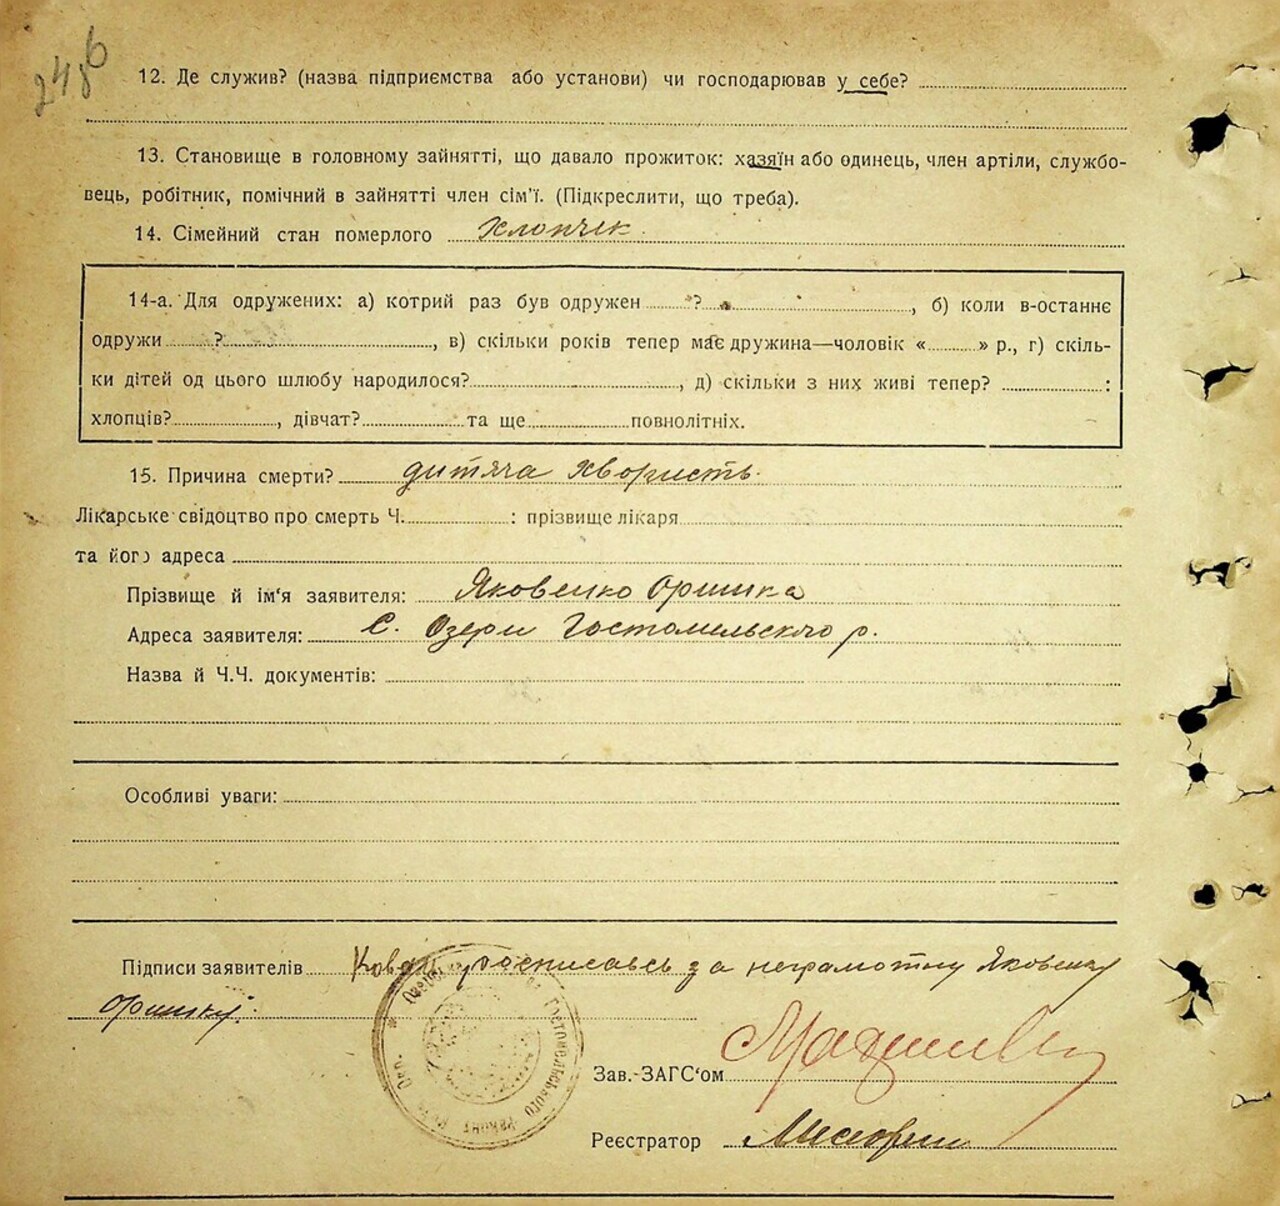 248б
12. Де служив? (назва підприємства або установи) чи господарював у себе?
13. Становище в головному зайнятті, що давало прожиток: хазяїн або одинець, член артіли, службо-
вець, робітник, помічний в зайнятті член сім'ї. (Підкреслити, що треба).
14. Сімейний стан померлого хлопчик
14-а. Для одружених: а) котрий раз був одружен ?, б) коли в-останнє
одружи ?, в) скільки років тепер має дружина—чоловік « » р., г) скіль-
ки дітей од цього шлюбу народилося?, д) скільки з них живі тепер? :
хлопців?, дівчат? та ще повнолітніх.
15. Причина смерти? дитяча хвористь.
Лікарське свідоцтво про смерть Ч. : прізвище лікаря
та його адреса
Прізвище й ім'я заявителя: Яковенко Оришка
Адреса заявителя: С. Озери Гостомельского р.
Назва й Ч.Ч. документів:
Особливі уваги:
Підписи заявителів росписавсь за неграмотну Яковенку
Оришку.
Гостомельського
Зав.-ЗАГС'ом
Реєстратор